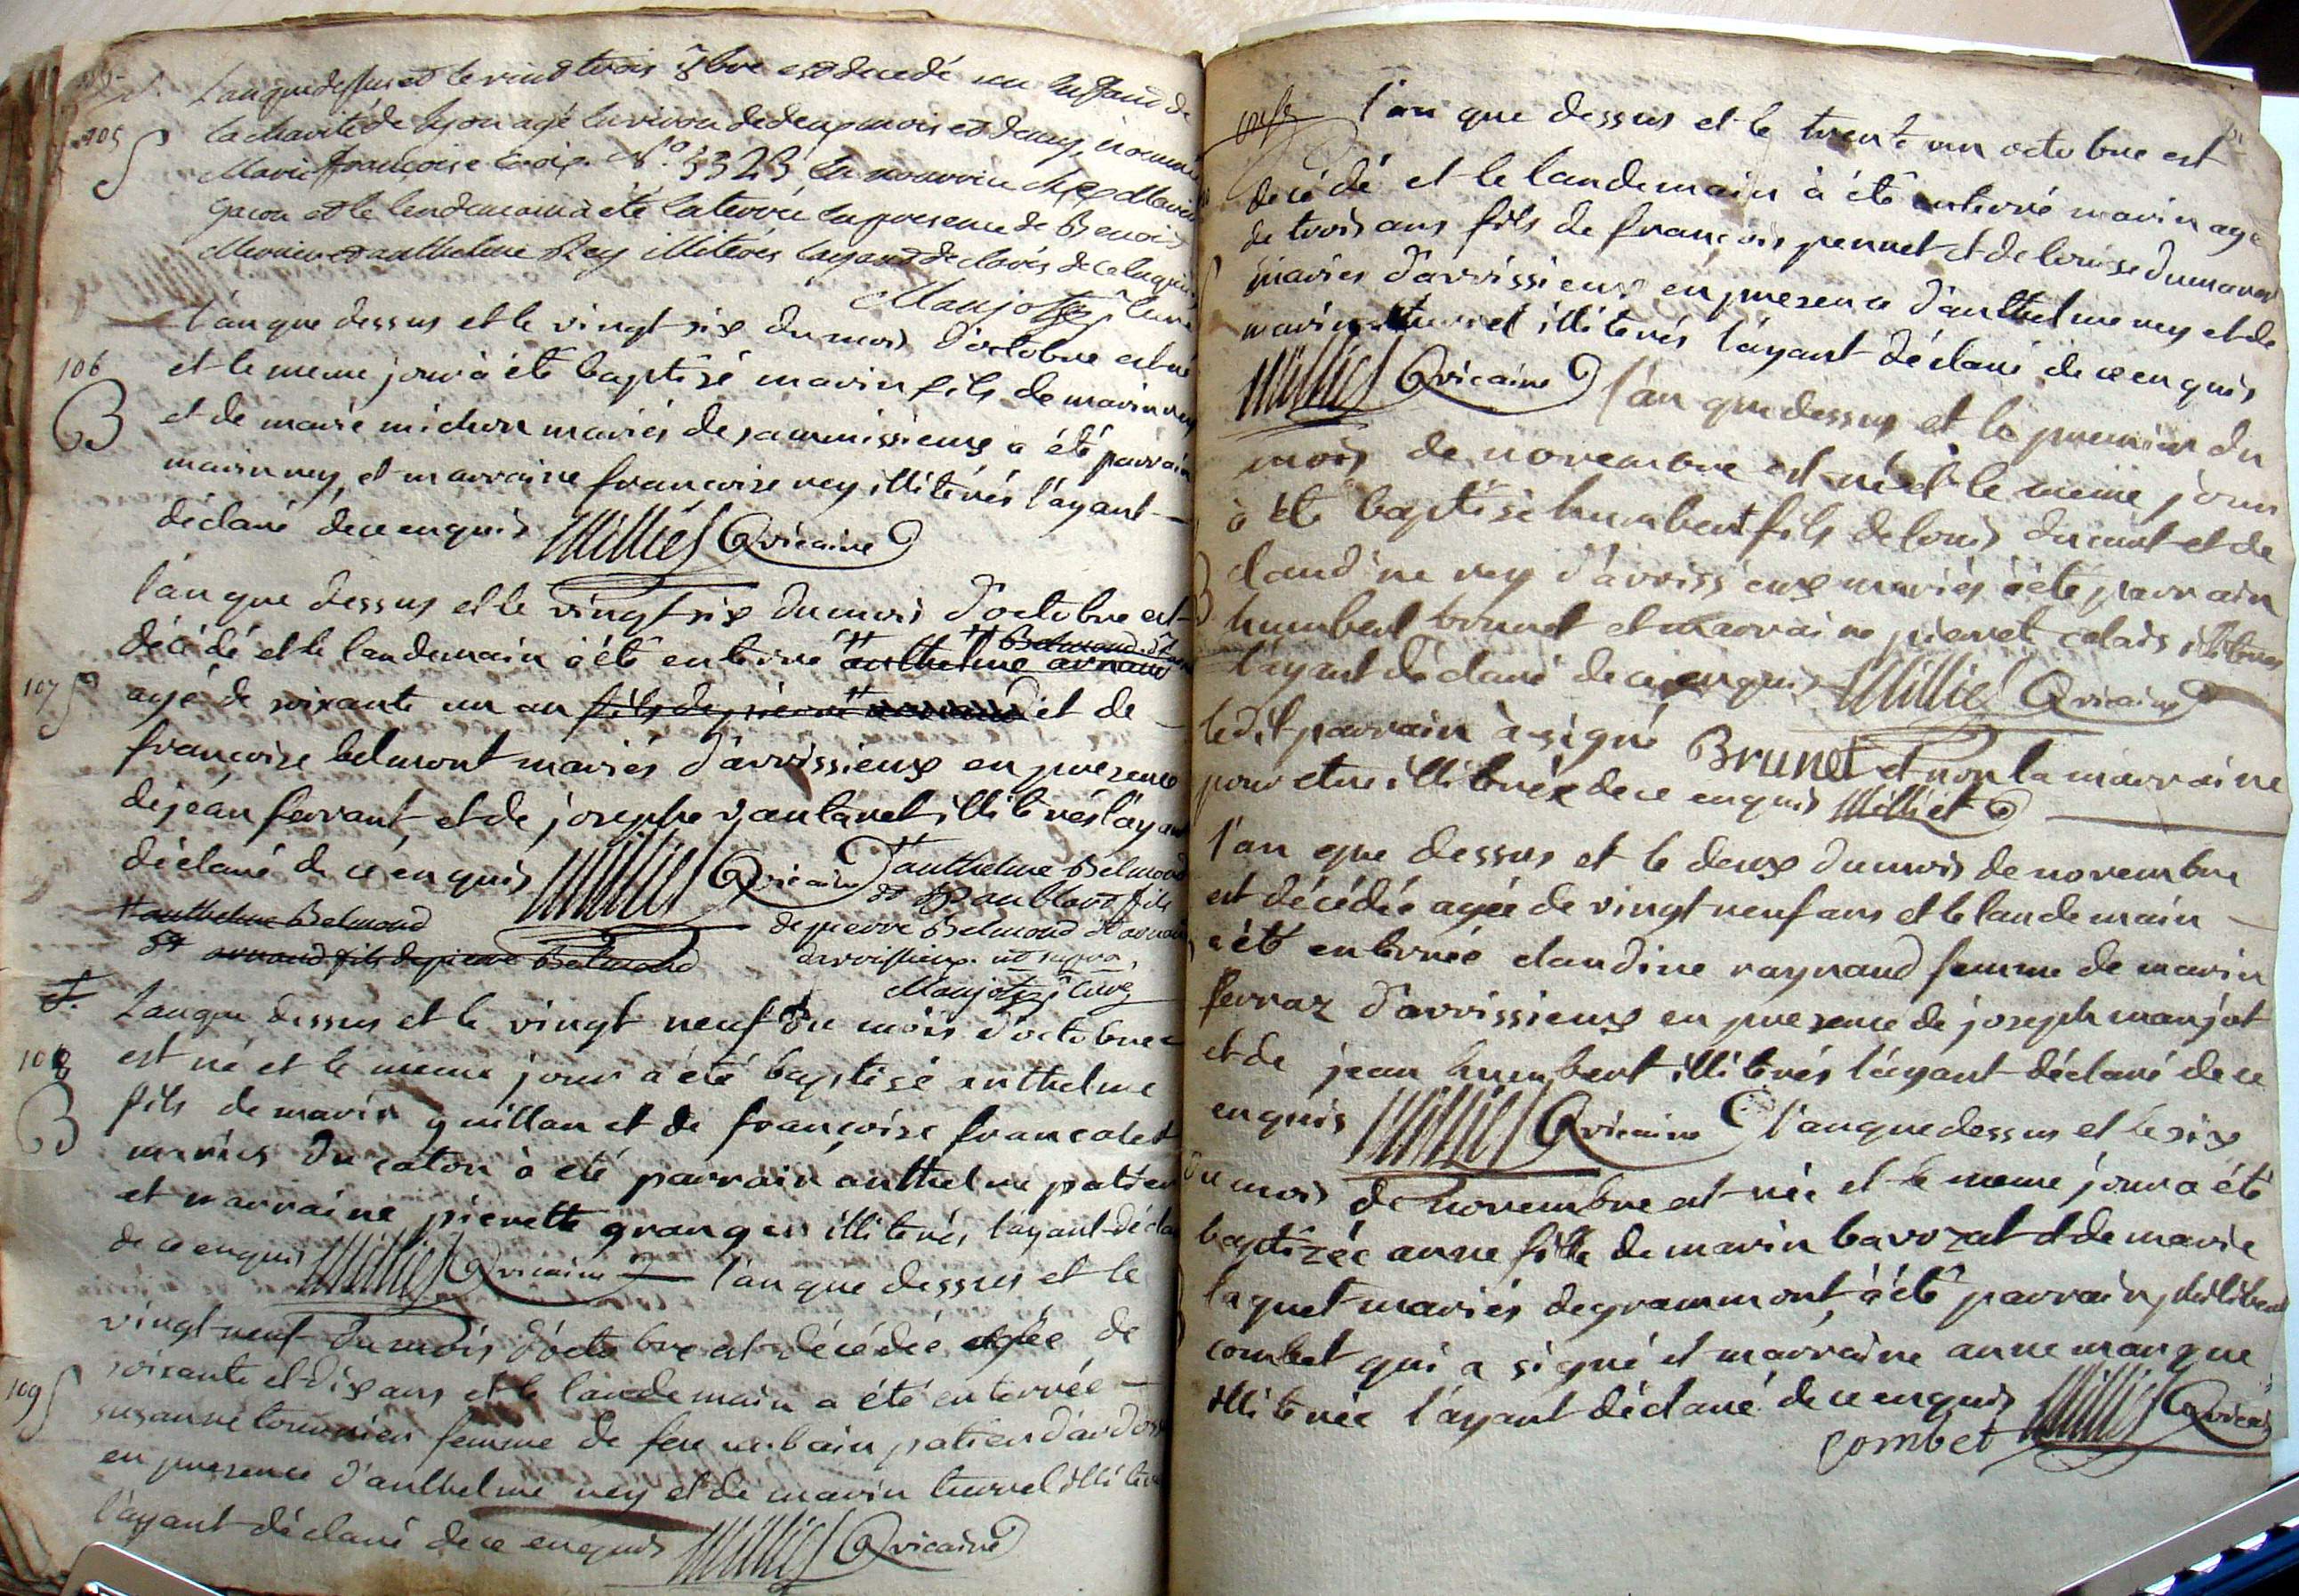 L'an que dessus et le vind trois 8bre est decedé un Enfand de
105
la charité de Lyon agé Environ de deux mois et demy, nommé
Marie françoise N.º 3323 En nourrice chez Marie
gacon et le lendemain a été Enterré En presence de Benoit
Mernier et anthelme Rey illiterés layant declarés de ce Enquis
Manjot curé
l'an que dessus et le vingt six du mois d'octobre est né
106
et le meme jour à été baptisé marin fils de marin rey
B
et de marie michon mariés de sammissieux a été parrain
marin rey, et marraine françoise rey illiterés l'ayant
déclaré de ce enquis Milliet vicaire
l'an que dessus et le vingt six du mois d'octobre est
Belmond dt
décédé et le landemain à été enterré anthelme arnaud
107
agé de soixante un an fils de pierre arnaud et de
françoise belmont mariés d'arvissieux en présence
de jéan ferrant, et de joseph vantaret illiterés l'ayant
déclaré de ce enquis Milliet vicaire anthelme Belmond
anthelme Belmond
dt arnaud fils de pierre Belmond
de pierre Belmond dt arnaud
arvissieux ut supra,
Manjot curé
L'anque dessus et le vingt neuf du mois d'octobre
108
est né et le meme jour a été baptisé anthelme
B
fils de marin guillan et de françoise francolet
mariés du caton à été parrain anthelme patier
et marraine pierette granger illiterés l'ayant décla
de ce enquis Milliet vicaire l'an que dessus et le
vingt neuf du mois d'octobre est décédée agée de
soixante et dix ans et le landemain a été enterrée
109
susanne tournier femme de feu urbain patier d'ardoss
en presence d'anthelme rey et de marin turrel illiter
l'ayant déclaré de ce enquis Milliet vicaire
l'an que dessus et le trent un octobre est
decédé et le landemain à été enterré marin agé
de trois ans fils de françois pernet et de louise dumarest
mariés d'arvissieux en presence d'anthelme rey et de
marin turrel illiterés l'ayant déclaré de ce enquis
Milliet vicaire l'an que dessus et le premier du
mois de novembre est né et le meme jour
à été baptisé humbert fils de louis ducurt et de
claudine rey d'arvissieux mariés à été parrain
humbert brunet et marraine pieret calais illiterés
l'ayant déclaré de ce enquis Milliet vicaire
ledit parrain à signé Brunet et non la marraine
pour etre illiterée de ce enquis Milliet
l'an que dessus et le deux du mois de novembre
est décédée agée de vingt neuf ans et le landemain
a été enterrée claudine raynaud femme de marin
ferraz d'arvissieux en presence de joseph manjot
et de jean humbert illiterés l'ayant déclaré de ce
enquis Milliet vicaire l'an que dessus et le six
du mois de novembre est née et le meme jour a été
baptizée anne fille de marin bavozat et de marie
laquet mariés de grammont, à été parrain philibert
combet qui a signé et marraine anne mangue
illiterée l'ayant déclaré de ce enquis Milliet vicaire
combet